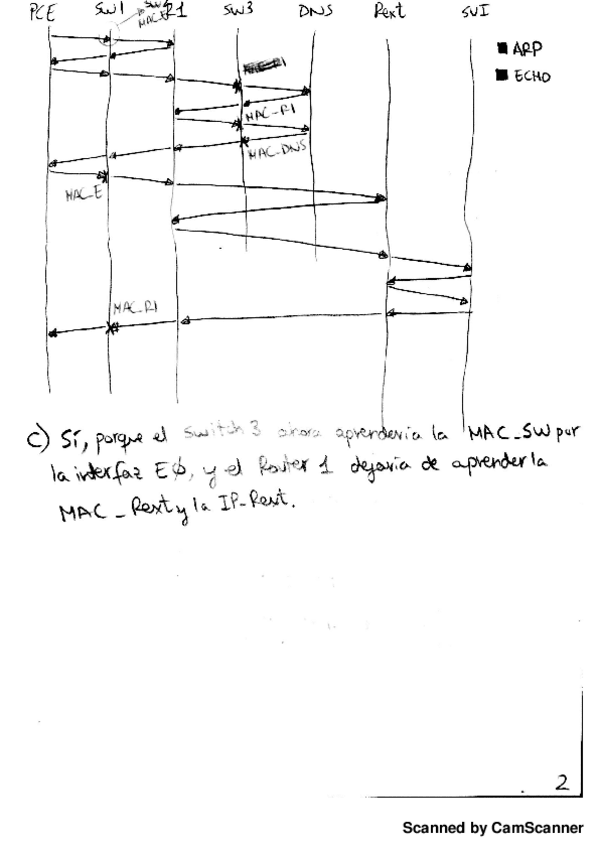 PCE SW1 R1 SW3 DNS Rext SVI
MAC_E
ARP
ECHO
MAC_R1
MAC_DNS
MAC_E
MAC_R1
c) Sí, porque el switch 3 ahora aprendería la MAC_SW por
la interfaz E∅, y el Router 1 dejaría de aprender la
MAC_Rext y la IP_Rext.
2
Scanned by CamScanner